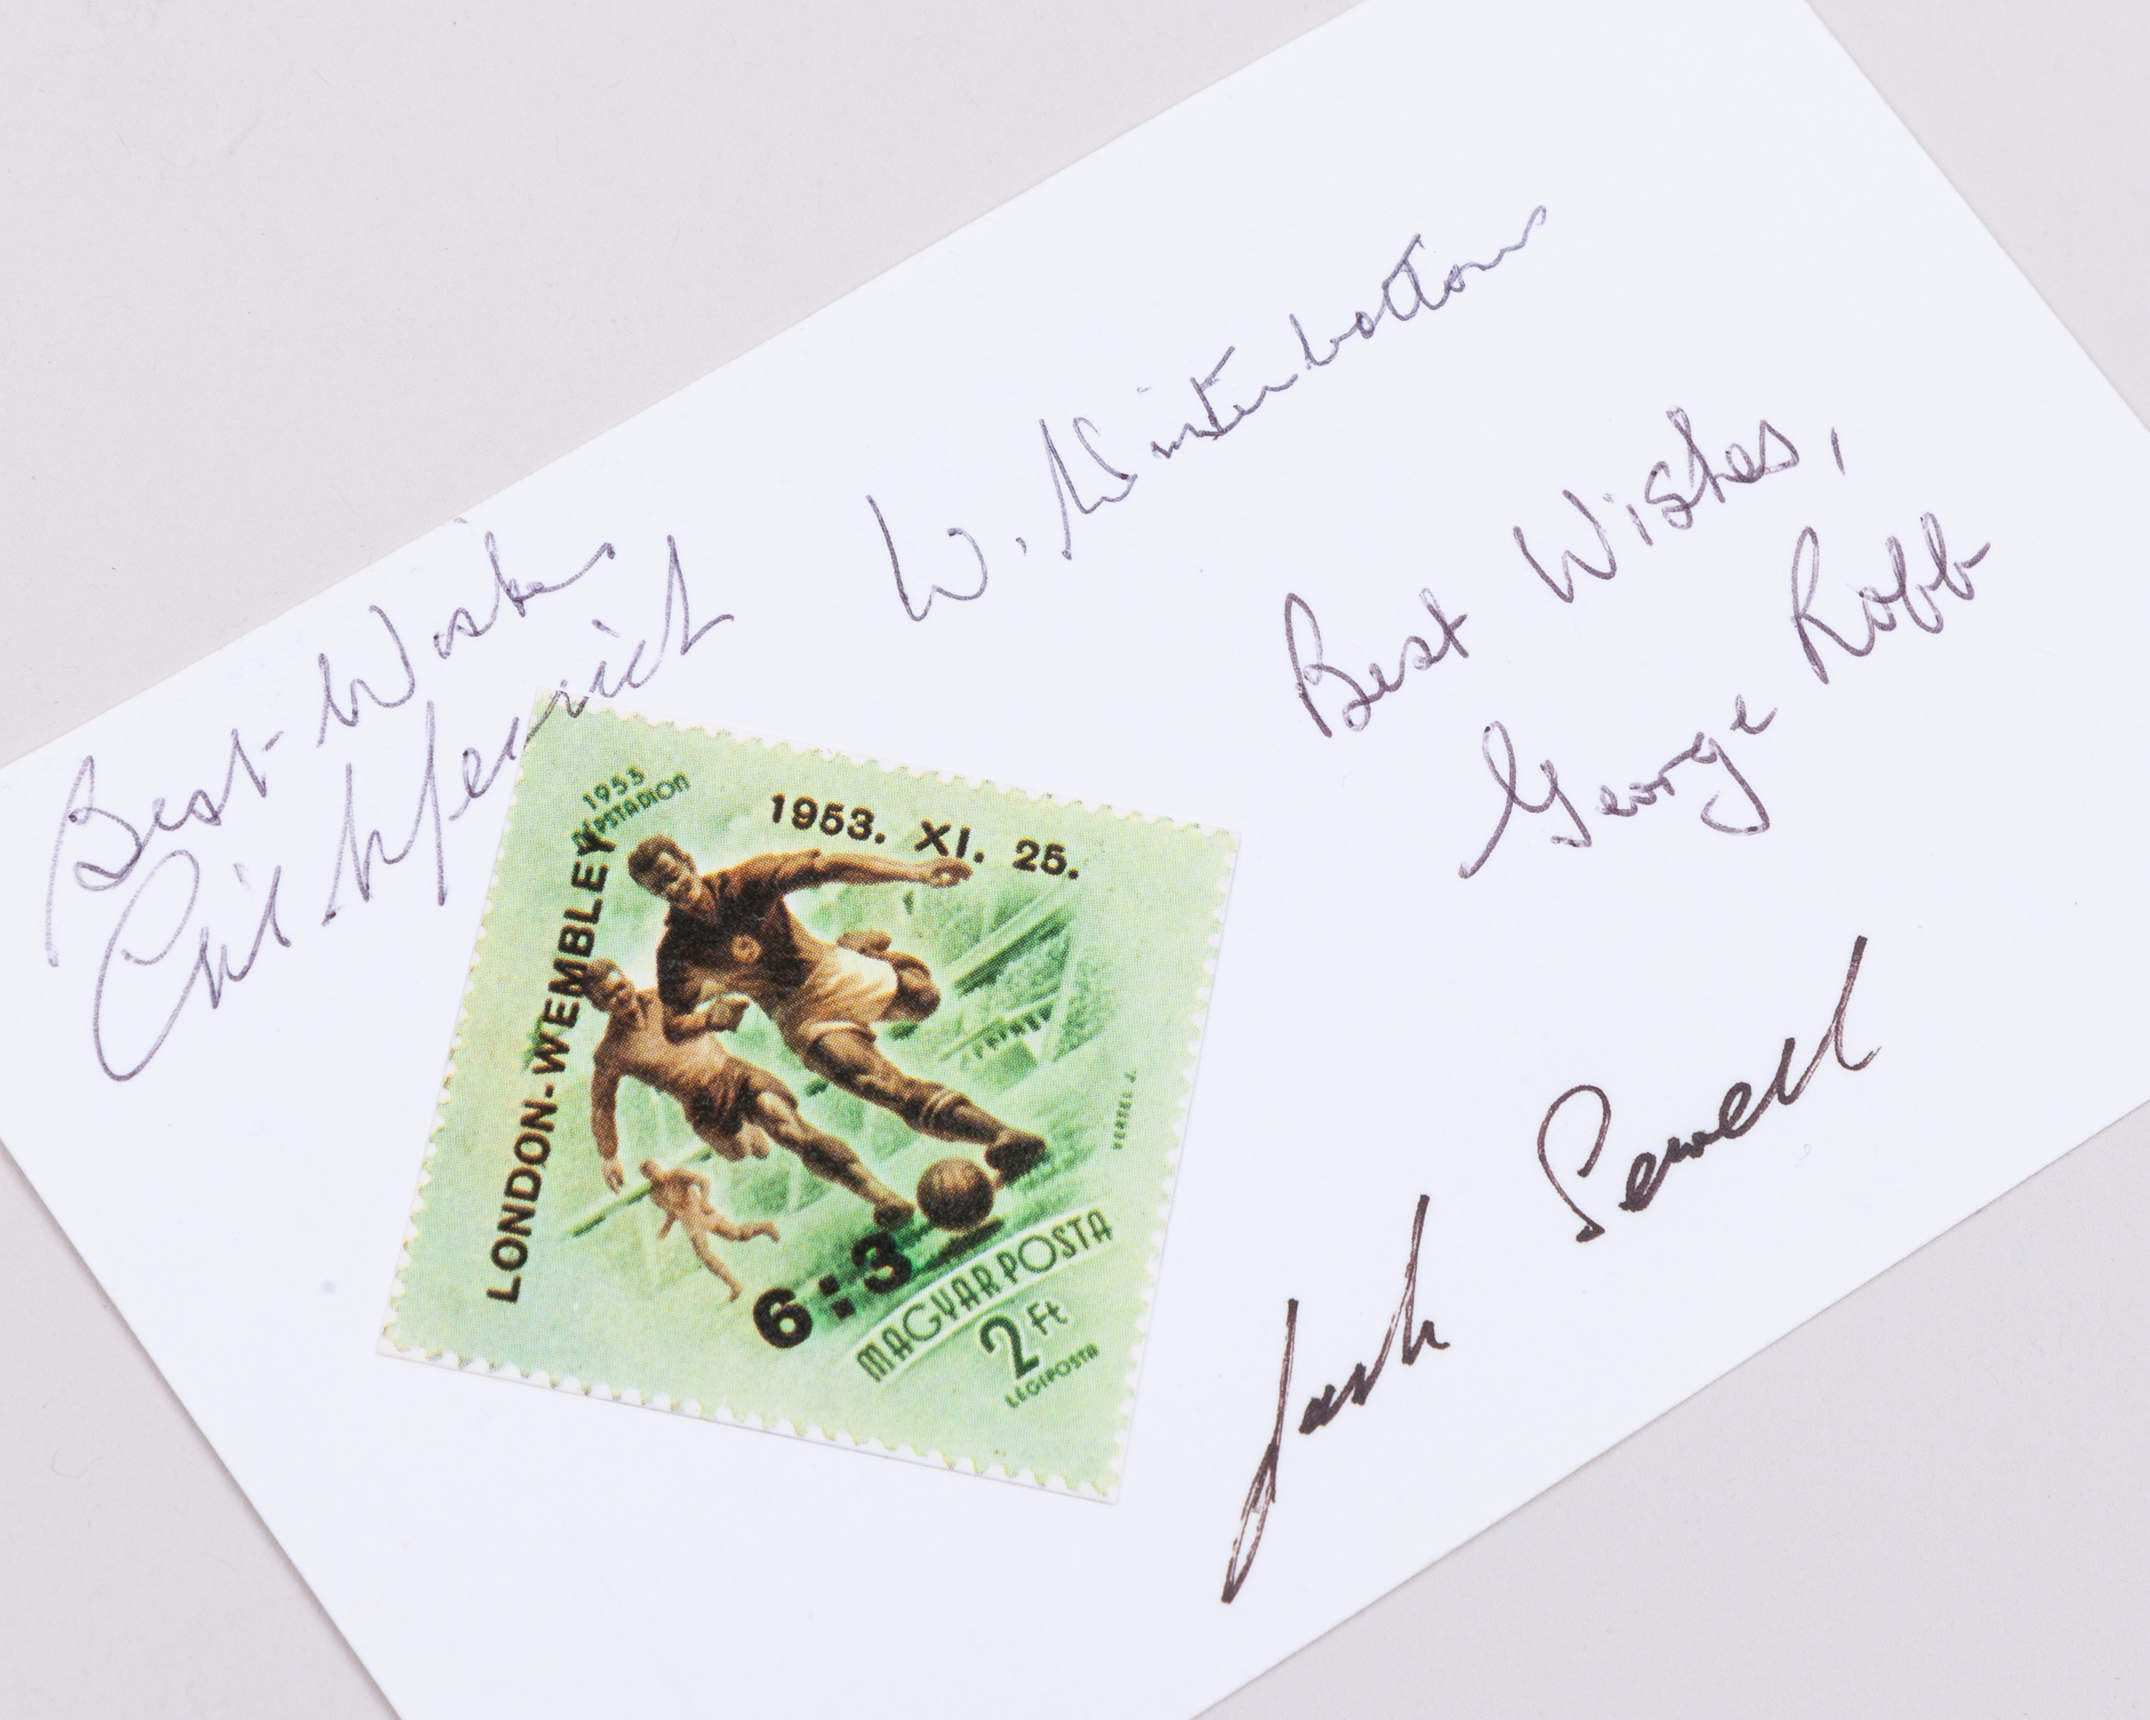 Best Wishes
Gil Merrick
W. Winterbottom
Best Wishes,
George Robb
1953
NÉPSTADION
1953. XI. 25.
LONDON-WEMBLEY
6:3
MAGYAR POSTA
2 Ft
LÉGIPOSTA
VERTEL J.
Jack Sewell